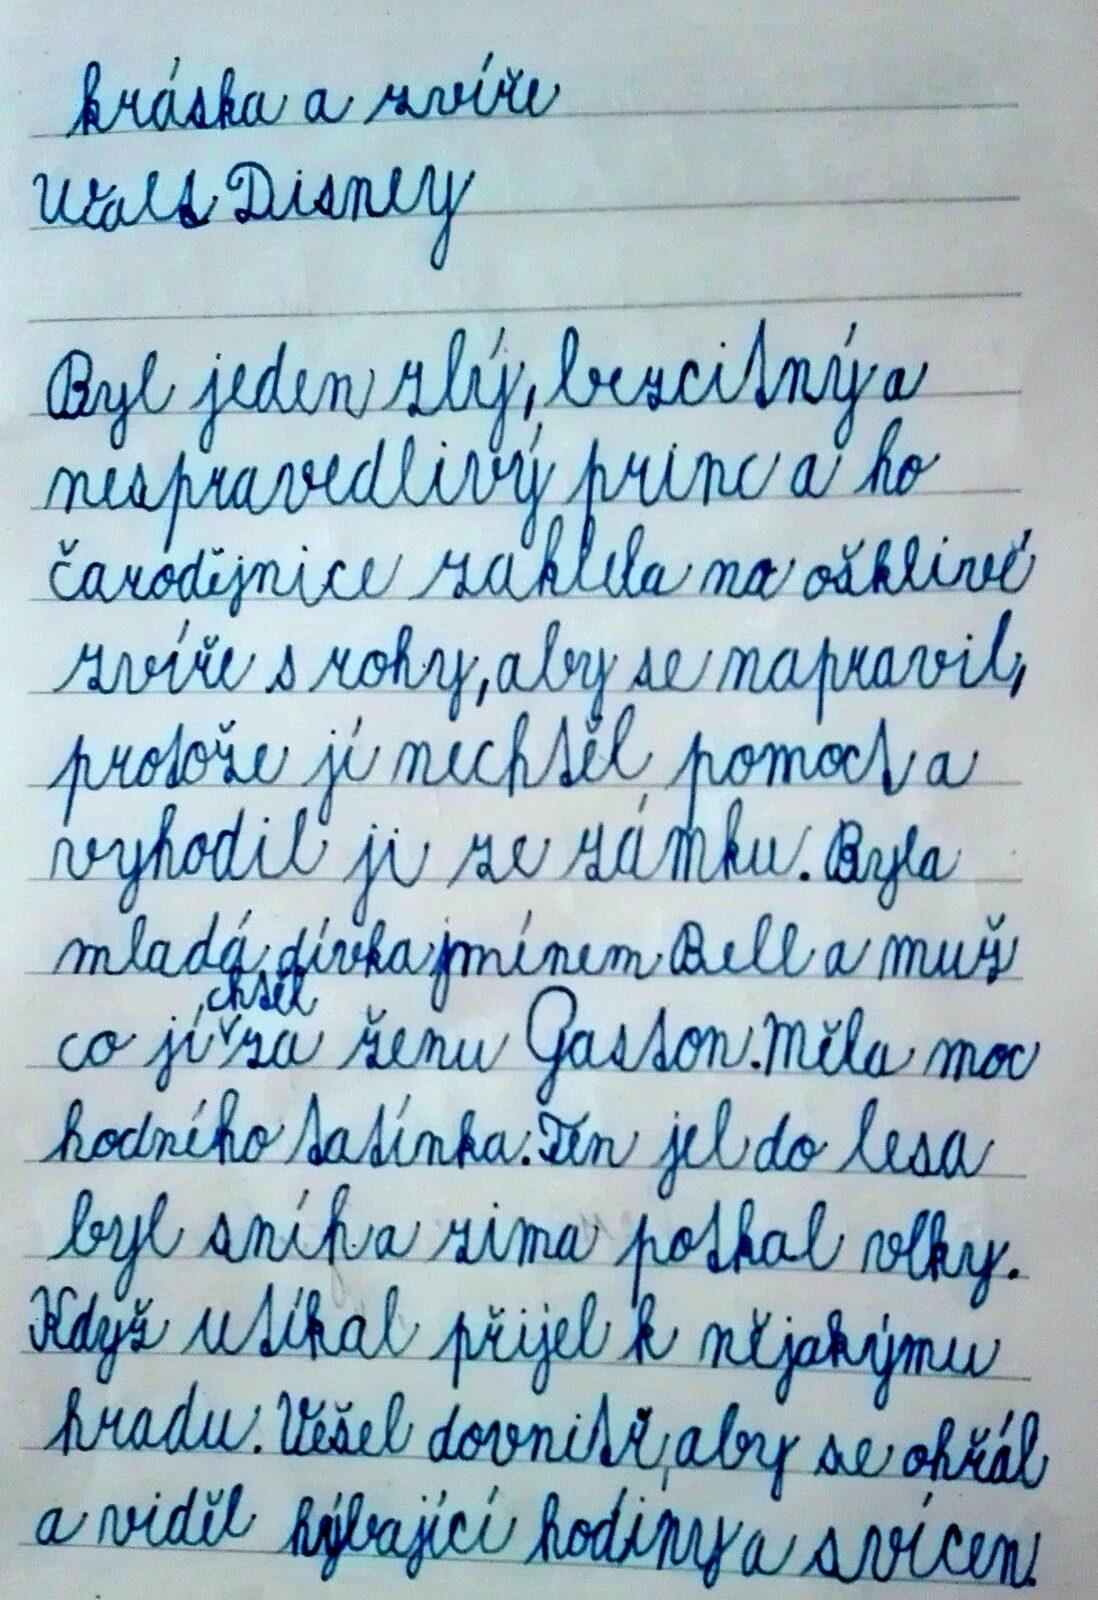 kráska a zvíře
Walt Disney
Byl jeden zlý, bezcitný a
nespravedlivý princ a ho
čarodějnice zaklela na ošklivé
zvíře s rohy, aby se napravil,
protože jí nechtěl pomoct a
vyhodil ji ze zámku. Byla
mladá dívka jménem Bell a muž
co jí chtěl za ženu Gaston. Měla moc
hodného tatínka. Ten jel do lesa
byl sníh a zima potkal vlky.
Když utíkal přijel k nějakýmu
hradu. Vešel dovnitř, aby se ohřál
a viděl hýbající hodiny a svícen.